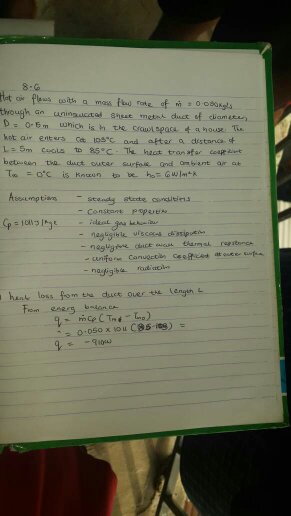 8.6
Hot air flows with a mass flow rate of ṁ = 0.050kg/s
through an uninsulated sheet metal duct of diameter,
D = 0.15m which is in the crawlspace of a house. The
hot air enters at 103°C and after a distance of
L = 5m cools to 85°C. The heat transfer coefficient
between the duct outer surface and ambient air at
T∞ = 0°C is known to be ho = 6W/m²K
Assumptions - steady state conditions
- Constant properties
Cp = 1011 J/kgK - ideal gas behavior
- negligible viscous dissipation
- negligible duct wall thermal resistance
- uniform convection coefficient at outer surface
- negligible radiation
heat loss from the duct over the length L
From energy balance
q = ṁCp (Tmo - Tmo)
= 0.050 x 1011 (85-103) =
q = -910W